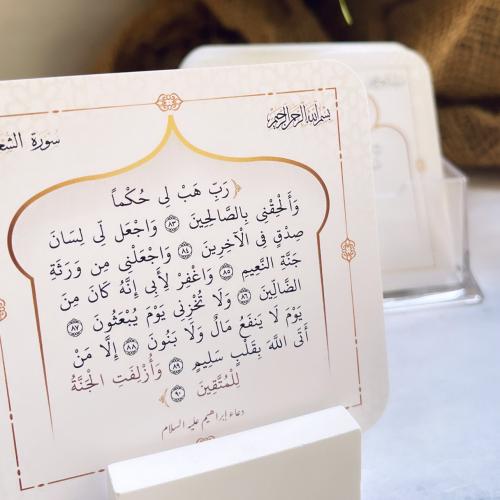 بسم الله الرحمن الرحيم
سورة الشع
﴿رَبِّ هَبْ لِي حُكْماً
وَأَلْحِقْنِي بِالصَّالِحِينَ ٨٣ وَاجْعَل لِّي لِسَانَ
صِدْقٍ فِي الْآخِرِينَ ٨٤ وَاجْعَلْنِي مِن وَرَثَةِ
جَنَّةِ النَّعِيمِ ٨٥ وَاغْفِرْ لِأَبِي إِنَّهُ كَانَ مِنَ
الضَّالِّينَ ٨٦ وَلَا تُخْزِنِي يَوْمَ يُبْعَثُونَ ٨٧
يَوْمَ لَا يَنفَعُ مَالٌ وَلَا بَنُونَ ٨٨ إِلَّا مَنْ
أَتَى اللَّهَ بِقَلْبٍ سَلِيمٍ ٨٩ وَأُزْلِفَتِ الْجَنَّةُ
لِلْمُتَّقِينَ ٩٠﴾
دعاء إبراهيم عليه السلام